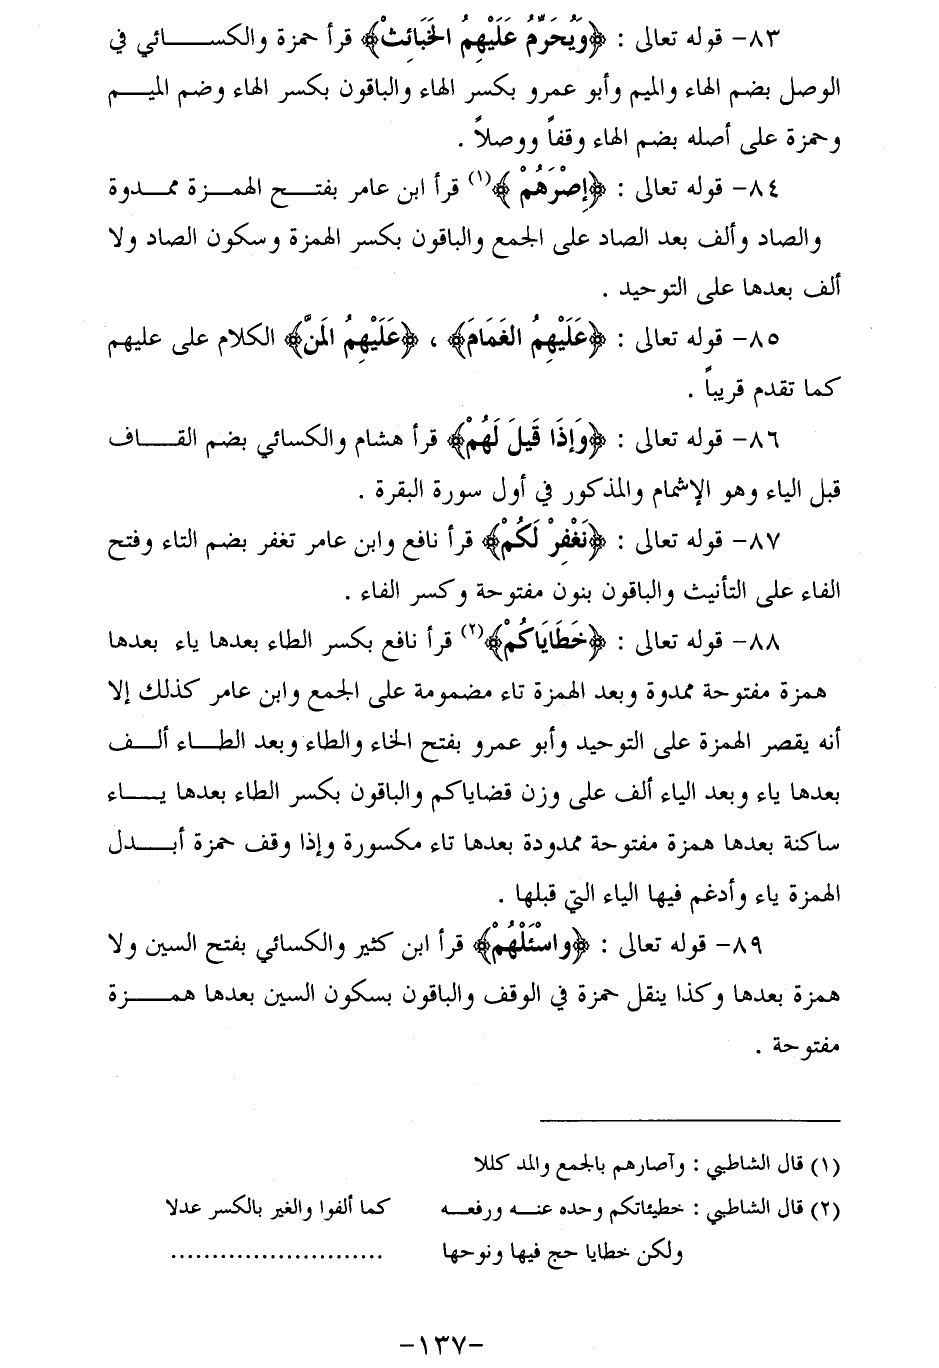 ٨٣- قوله تعالى : ﴿وَيُحَرِّمُ عَلَيْهِمُ الخَبَائِثْ﴾ قرأ حمزة والكسائي في
الوصل بضم الهاء والميم وأبو عمرو بكسر الهاء والباقون بكسر الهاء وضم الميم
وحمزة على أصله بضم الهاء وقفاً ووصلاً .
٨٤- قوله تعالى : ﴿إِصْرَهُمْ﴾(١) قرأ ابن عامر بفتح الهمزة ممدوة
والصاد وألف بعد الصاد على الجمع والباقون بكسر الهمزة وسكون الصاد ولا
ألف بعدها على التوحيد .
٨٥- قوله تعالى : ﴿عَلَيْهِمُ الغَمَامَ﴾ ، ﴿عَلَيْهِمُ المَنَّ﴾ الكلام على عليهم
كما تقدم قريباً .
٨٦- قوله تعالى : ﴿وَإِذَا قَيلَ لَهُمْ﴾ قرأ هشام والكسائي بضم القاف
قبل الياء وهو الإشمام والمذكور في أول سورة البقرة .
٨٧- قوله تعالى : ﴿نَغْفِرْ لَكُمْ﴾ قرأ نافع وابن عامر تغفر بضم التاء وفتح
الفاء على التأنيث والباقون بنون مفتوحة وكسر الفاء .
٨٨- قوله تعالى : ﴿خَطَايَاكُمْ﴾(٢) قرأ نافع بكسر الطاء بعدها ياء بعدها
همزة مفتوحة ممدوة وبعد الهمزة تاء مضمومة على الجمع وابن عامر كذلك إلا
أنه يقصر الهمزة على التوحيد وأبو عمرو بفتح الخاء والطاء وبعد الطاء ألف
بعدها ياء وبعد الياء ألف على وزن قضاياكم والباقون بكسر الطاء بعدها ياء
ساكنة بعدها همزة مفتوحة ممدودة بعدها تاء مكسورة وإذا وقف حمزة أبدل
الهمزة ياء وأدغم فيها الياء التي قبلها .
٨٩- قوله تعالى : ﴿واسْئَلْهُمْ﴾ قرأ ابن كثير والكسائي بفتح السين ولا
همزة بعدها وكذا ينقل حمزة في الوقف والباقون بسكون السين بعدها همزة
مفتوحة .
(١) قال الشاطبي : وآصارهم بالجمع والمد كللا
(٢) قال الشاطبي : خطيئاتكم وحده عنه ورفعه كما ألفوا والغير بالكسر عدلا
ولكن خطايا حج فيها ونوحها ..........................
-١٣٧-